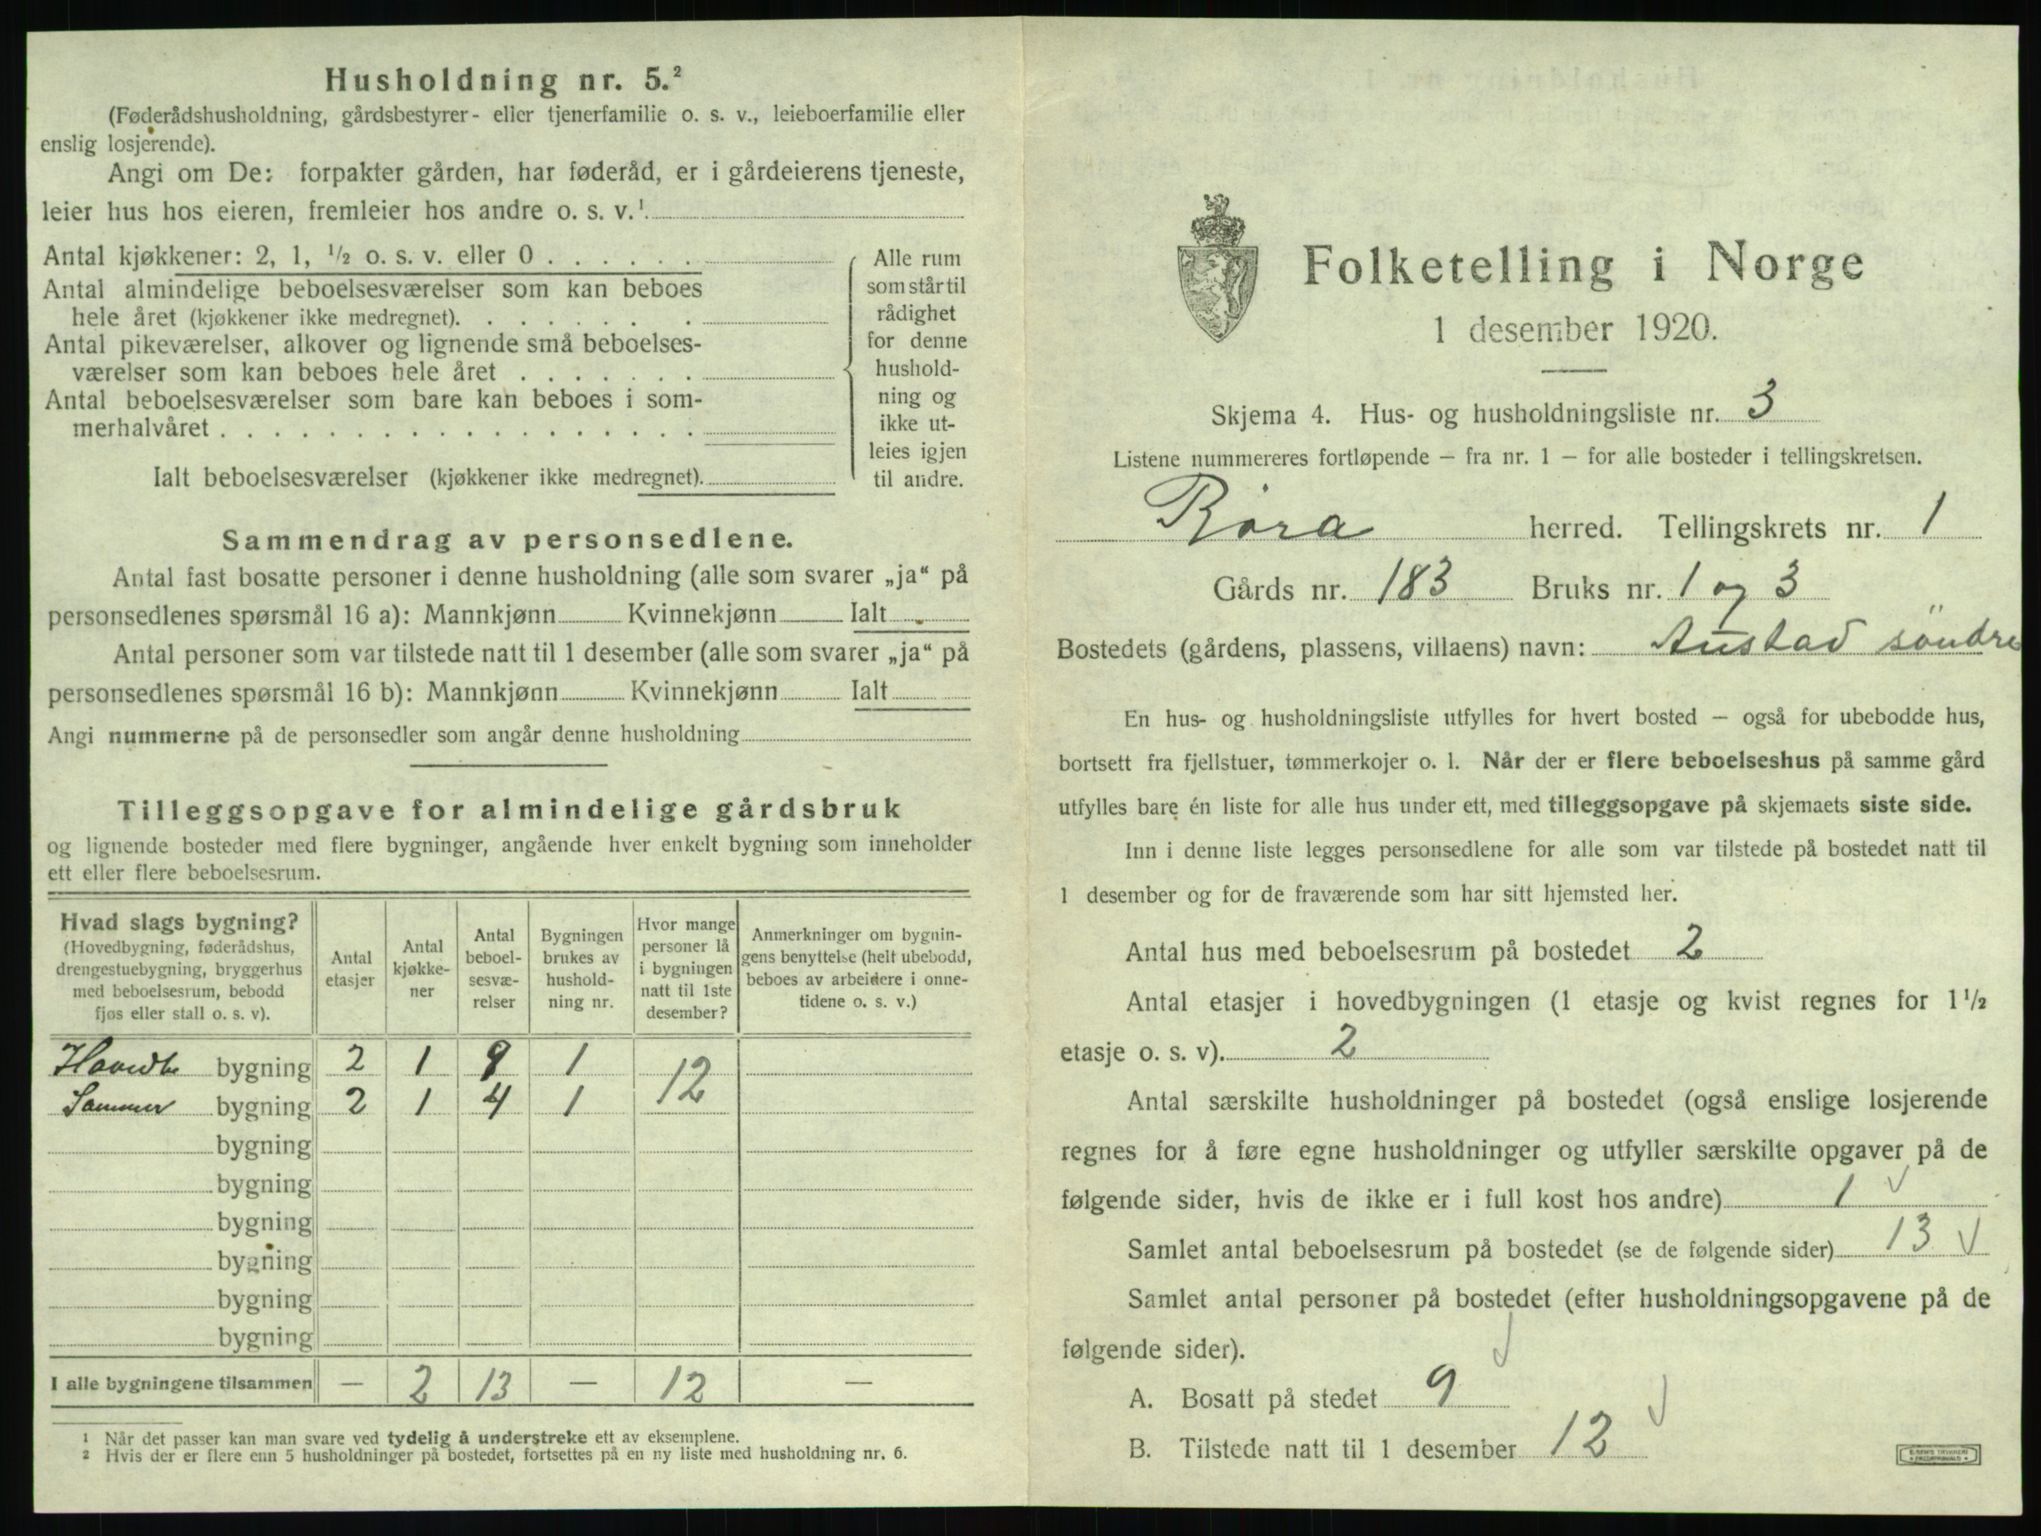 Husholdning nr. 5.²
(Føderådshusholdning, gårdsbestyrer- eller tjenerfamilie o. s. v., leieboerfamilie eller
enslig losjerende).
Angi om De: forpakter gården, har føderåd, er i gårdeierens tjeneste,
leier hus hos eieren, fremleier hos andre o. s. v.¹
Antal kjøkkener: 2, 1, ½ o. s. v. eller 0 . . . . . .
Antal almindelige beboelsesværelser som kan beboes
hele året (kjøkkener ikke medregnet). . . . . . . .
Antal pikeværelser, alkover og lignende små beboelses-
værelser som kan beboes hele året . . . . . . .
Antal beboelsesværelser som bare kan beboes i som-
merhalvåret . . . . . . . . . . . . . . . . . .
Ialt beboelsesværelser (kjøkkener ikke medregnet).
Alle rum
som står til
rådighet
for denne
hushold-
ning og
ikke ut-
leies igjen
til andre.
Sammendrag av personsedlene.
Antal fast bosatte personer i denne husholdning (alle som svarer „ja“ på
personsedlenes spørsmål 16 a): Mannkjønn Kvinnekjønn Ialt
Antal personer som var tilstede natt til 1 desember (alle som svarer „ja“ på
personsedlenes spørsmål 16 b): Mannkjønn Kvinnekjønn Ialt
Angi nummerne på de personsedler som angår denne husholdning
Tilleggsopgave for almindelige gårdsbruk
og lignende bosteder med flere bygninger, angående hver enkelt bygning som inneholder
ett eller flere beboelsesrum.
Hvad slags bygning?
(Hovedbygning, føderådshus,
drengestuebygning, bryggerhus
med beboelsesrum, bebodd
fjøs eller stall o. s. v).
Antal
etasjer
Antal
kjøkke-
ner
Antal
beboel-
sesvæ-
relser
Bygningen
brukes av
hushold-
ning nr.
Hvor mange
personer lå
i bygningen
natt til 1ste
desember?
Anmerkninger om bygnin-
gens benyttelse (helt ubebodd,
beboes av arbeidere i onne-
tidene o. s. v.)
bygning 2 1 9 1 12
Sommer bygning 2 1 4 1
bygning
bygning
bygning
bygning
bygning
bygning
I alle bygningene tilsammen — 2 13 — 12 —
¹ Når det passer kan man svare ved tydelig å understreke ett av eksemplene.
² Hvis der er flere enn 5 husholdninger på bostedet, fortsettes på en ny liste med husholdning nr. 6.
Folketelling i Norge
1 desember 1920.
Skjema 4. Hus- og husholdningsliste nr. 3
Listene nummereres fortløpende — fra nr. 1 — for alle bosteder i tellingskretsen.
Röra herred. Tellingskrets nr. 1
Gårds nr. 183 Bruks nr. 1 og 3
Bostedets (gårdens, plassens, villaens) navn: Austad söndre
En hus- og husholdningsliste utfylles for hvert bosted — også for ubebodde hus,
bortsett fra fjellstuer, tømmerkojer o. l. Når der er flere beboelseshus på samme gård
utfylles bare én liste for alle hus under ett, med tilleggsopgave på skjemaets siste side.
Inn i denne liste legges personsedlene for alle som var tilstede på bostedet natt til
1 desember og for de fraværende som har sitt hjemsted her.
Antal hus med beboelsesrum på bostedet 2
Antal etasjer i hovedbygningen (1 etasje og kvist regnes for 1½
etasje o. s. v). 2
Antal særskilte husholdninger på bostedet (også enslige losjerende
regnes for å føre egne husholdninger og utfyller særskilte opgaver på de
følgende sider, hvis de ikke er i full kost hos andre) 1
Samlet antal beboelsesrum på bostedet (se de følgende sider) 13
Samlet antal personer på bostedet (efter husholdningsopgavene på de
følgende sider).
A. Bosatt på stedet 9
B. Tilstede natt til 1 desember 12